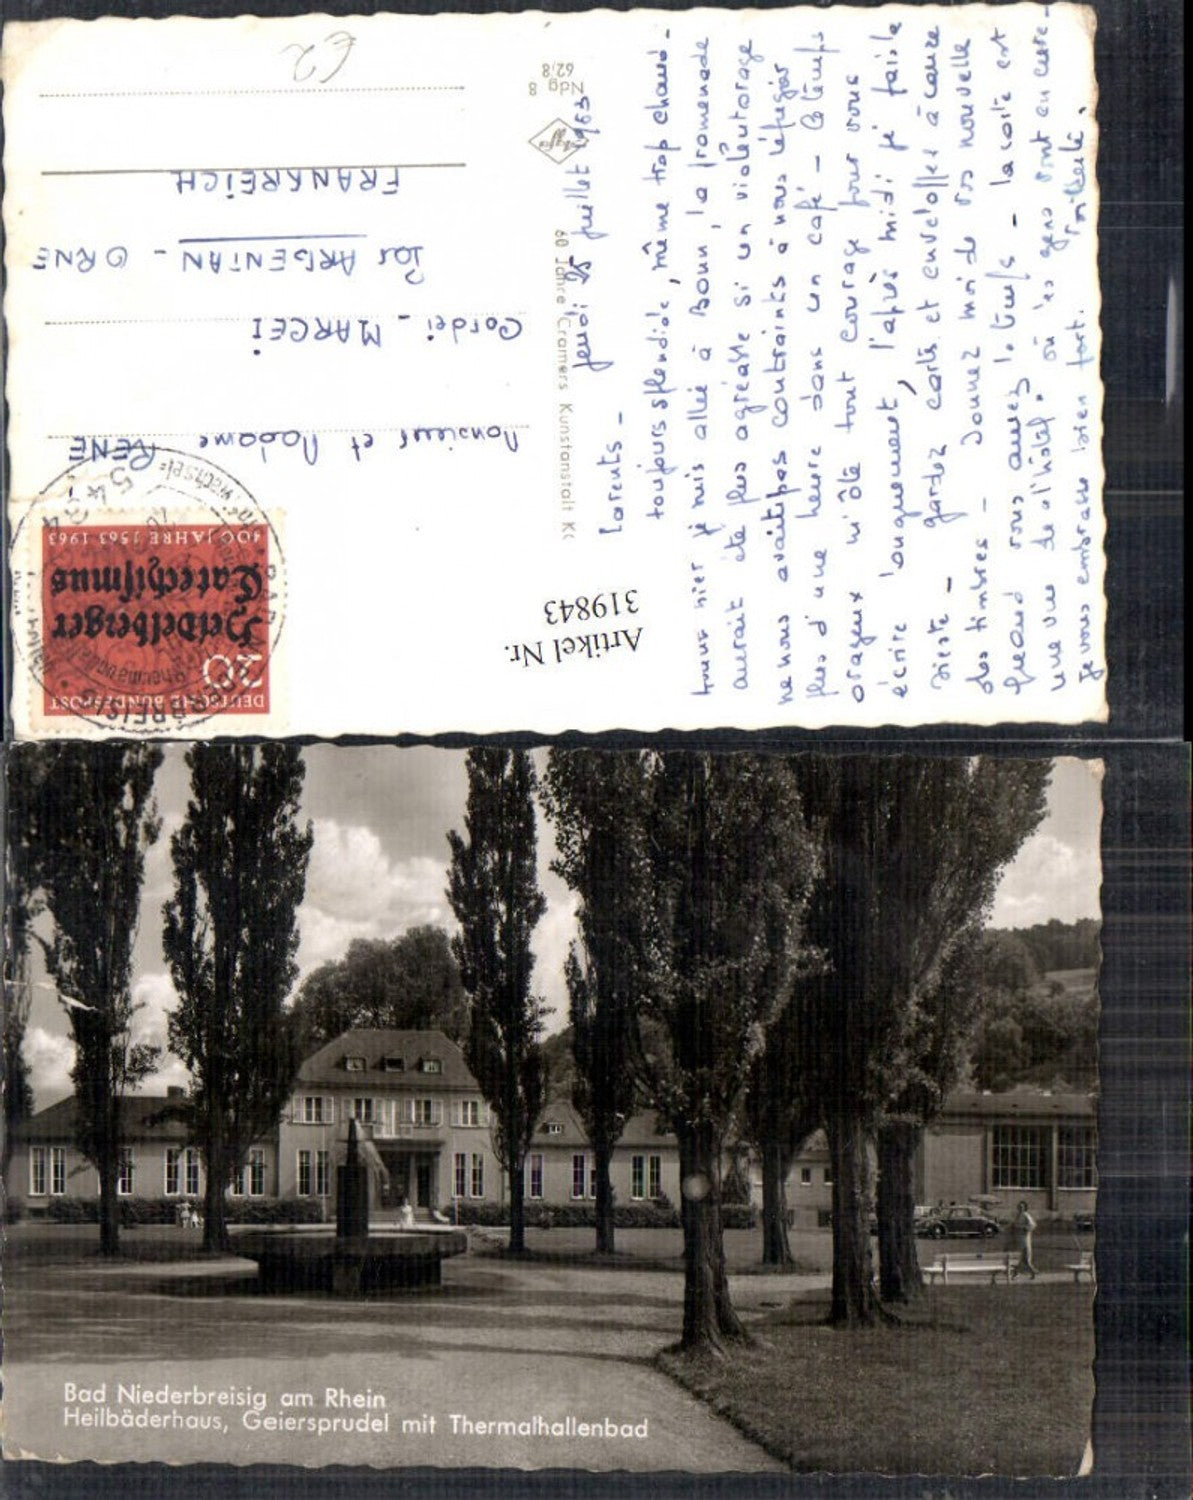 Parents -
Jeudi 25 Juillet 1963
toujours splendide, même trop chaud -
hier je suis allée à Bonn, la promenade
aurait été plus agréable si un violent orage
ne nous avait pas contraints à nous réfugier
plus d'une heure dans un café - le temps
orageux m'ôte tout courage pour vous
écrire longuement, l'après midi je fais la
sieste - gardez carte et enveloppes à cause
des timbres - donnez moi de vos nouvelles
quand vous aurez le temps - la carte est
une vue de l'hôtel où les gens sont en cure -
je vous embrasse bien fort.
Monsieur et Madame RENE
Cordei - MARCEI
par ARGENTAN - ORNE
FRANKREICH
€2
Ndg 8
62/8
Agfa
60 Jahre Cramers Kunstanstalt K
Artikel Nr.
319843
DEUTSCHE BUNDESPOST
20
Heidelberger
Catechismus
400 JAHRE 1563 1963
Bad Niederbreisig am Rhein
Heilbäderhaus, Geiersprudel mit Thermalhallenbad